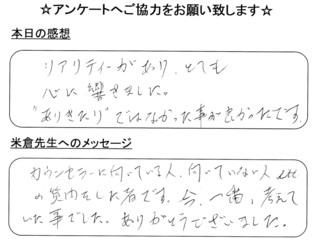 ☆アンケートへご協力をお願い致します☆
本日の感想
リアリティーがあり、とても
心に響きました。
"ありきたり"ではなかった事が良かったです。
米倉先生へのメッセージ
カウンセラーに向いている人、向いていない人
の質問をした者です。今、一番、考えて
いた事でした。ありがとうございました。